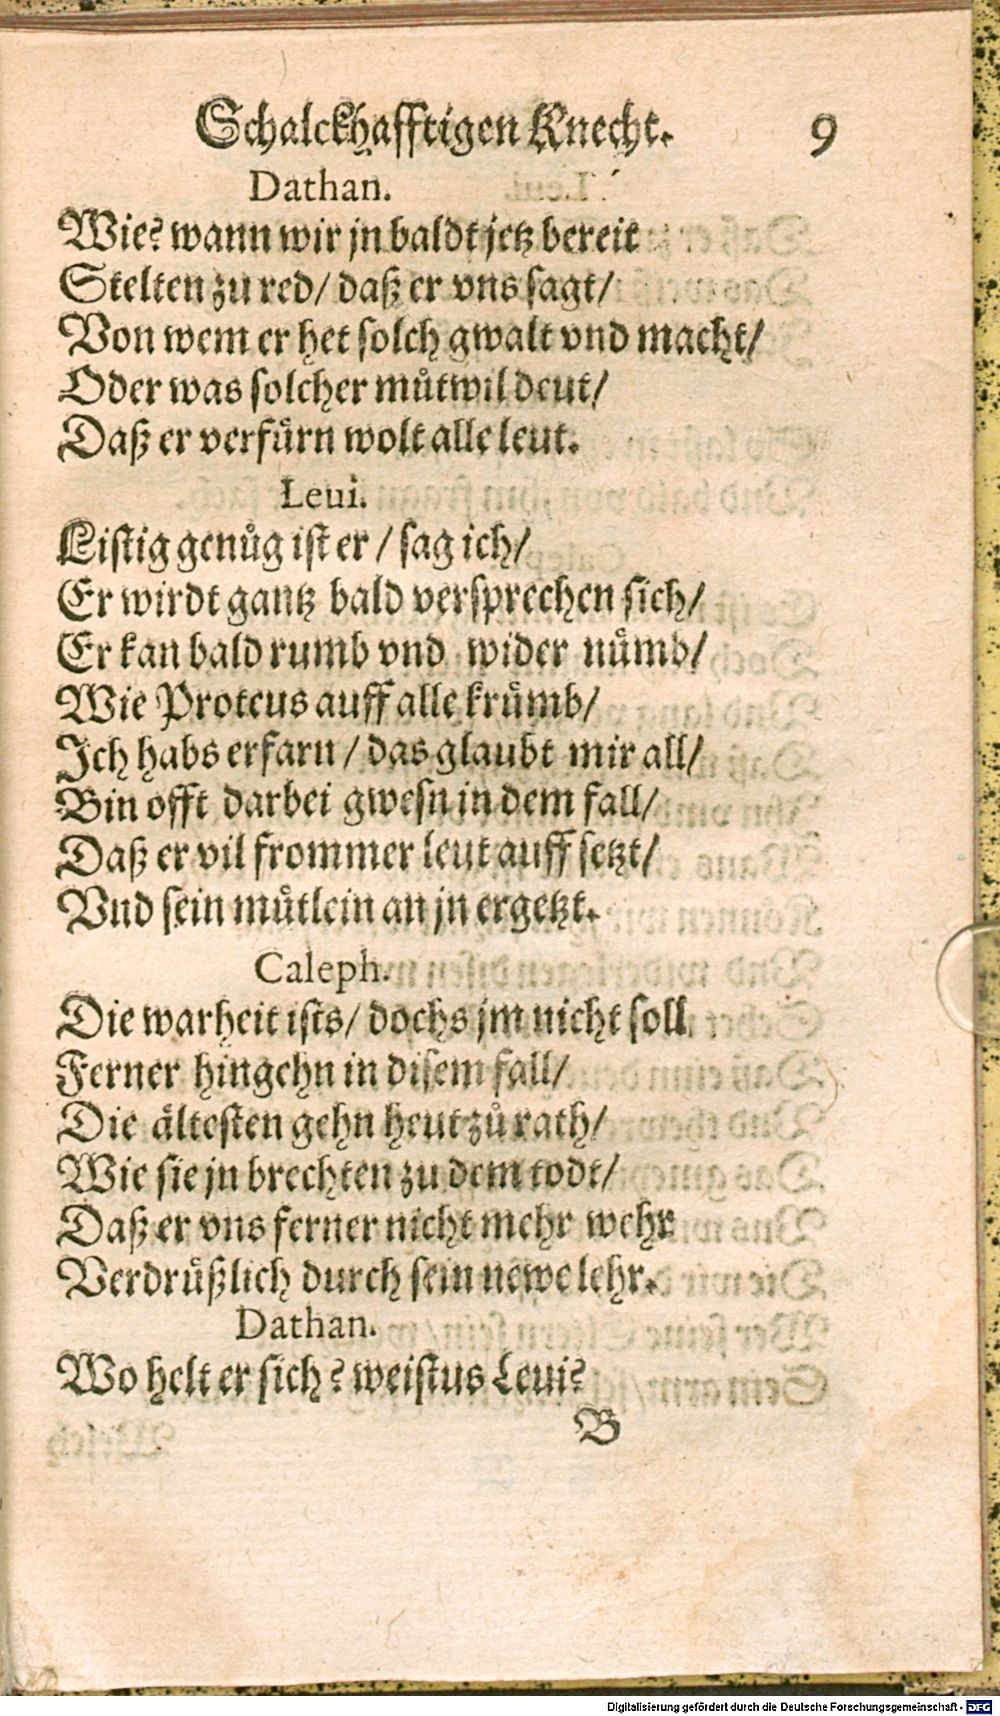 Schalckhafftigen Knecht. 9
Dathan.
Wie? wann wir jn baldt jetz bereit
Stelten zu red/ daß er vns sagt/
Von wem er het solch gwalt vnd macht/
Oder was solcher můtwil deut/
Daß er verfürn wolt alle leut.
Leui.
Listig genůg ist er / sag ich/
Er wirdt gantz bald versprechen sich/
Er kan bald rumb vnd wider nümb/
Wie Proteus auff alle krümb/
Ich habs erfarn / das glaubt mir all/
Bin offt darbei gwesn in dem fall/
Daß er vil frommer leut auff setzt/
Vnd sein můtlein an jn ergetzt.
Caleph.
Die warheit ists/ dochs jm nicht soll
Ferner hingehn in disem fall/
Die ältesten gehn heut zů rath/
Wie sie jn brechten zu dem todt/
Daß er vns ferner nicht mehr wehr
Verdrüßlich durch sein newe lehr.
Dathan.
Wo helt er sich? weistus Leui?
B
Digitalisierung gefördert durch die Deutsche Forschungsgemeinschaft - DFG